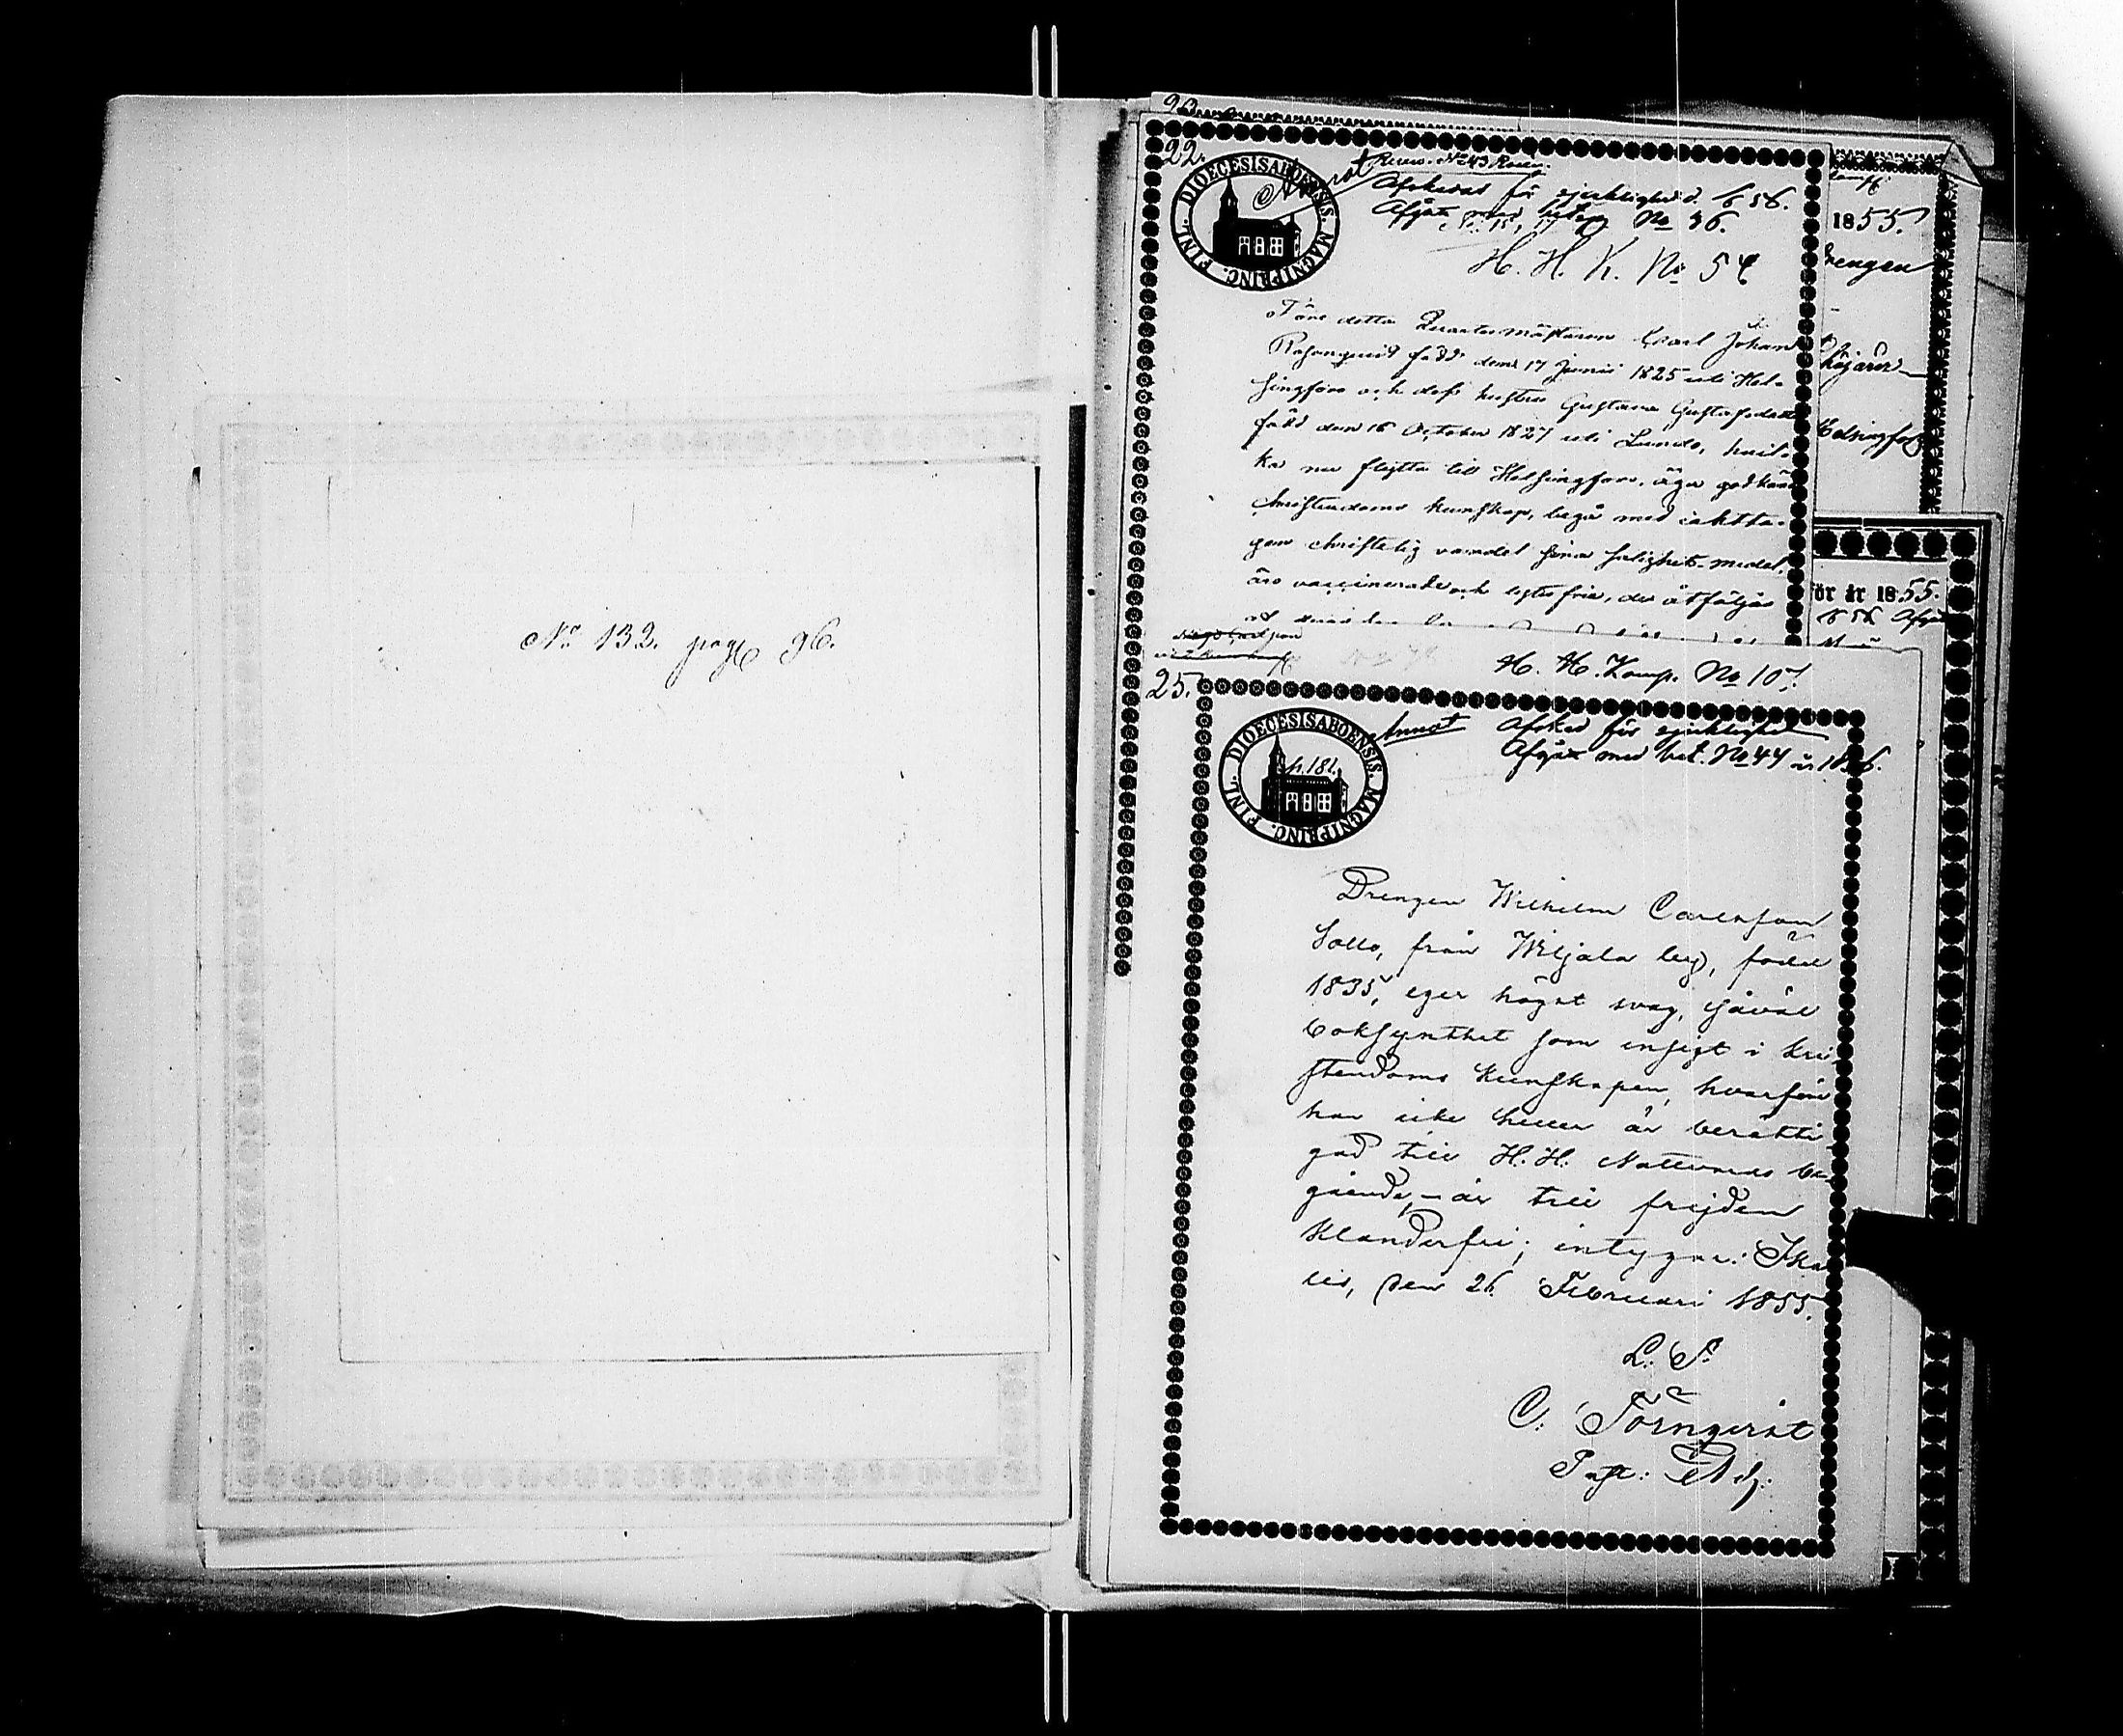 No 132. pag 96.
22.
DIOECESIS ABOENSIS. MAGNI PRINC. FINL.
Annot
Afskedas för sjuklighet d. 6 56.
Afgått med betyg No 36.
H. H. K. No 54
Före detta Quartermästaren Carl Johan
Rosenqvist född den 17 Junii 1825 uti Hel-
singfors och dess hustru Gustava Gustafsdotter
född den 16 October 1827 uti Lundo, hvil-
ka nu flytta till Helsingfors, äga godkänd
christendoms kunskap, begå med iaktta-
gen christelig vandel sina salighets-medel,
äro vaccinerade och lytesfria, de åtföljas
1855.
Drengen
Helsingfors
för år 1855.
H. H. Komp. No 107.
25.
DIOECESIS ABOENSIS. MAGNI PRINC. FINL.
p. 181.
Annot
Afsked för sjuklighet
Afgått med bet. No 44 år 1856.
Drengen Wilhelm Carlsson
Sallo, från Wiljala by, född
1835, eger högst svag, såväl
boksynthet som insigt i kri-
stendoms kunskapen, hvarföre
han icke heller är berätti-
gad till H. H. Nattvards be-
gående, – är till frejden
klanderfri; intygar: Ika-
lis, den 26 Februari 1855.
L. S.
C. Törnqvist
Past: Adj: